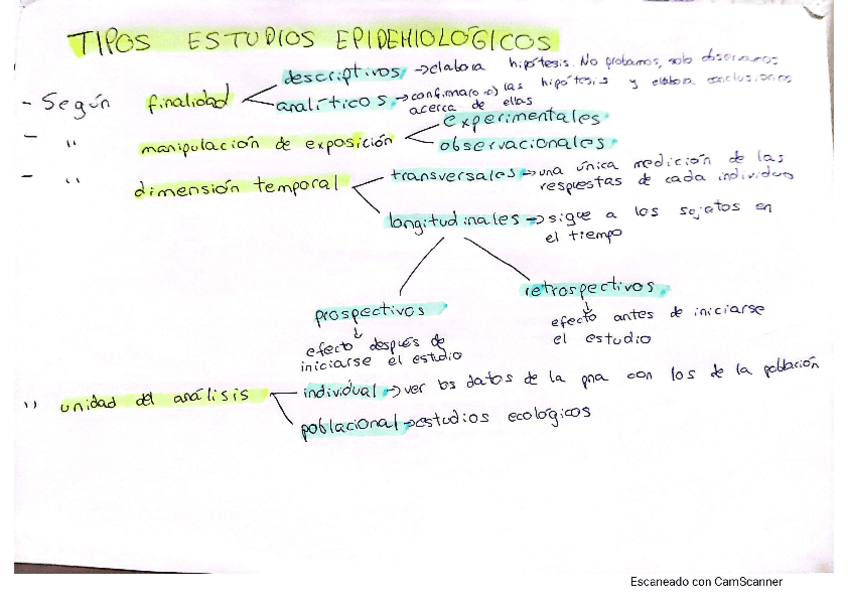 TIPOS ESTUDIOS EPIDEMIOLÓGICOS
- Según finalidad
descriptivos → elabora hipótesis. No probamos, solo observamos
analíticos → confirma(o no) las hipótesis y elabora conclusiones
acerca de ellas
- " manipulación de exposición
experimentales
observacionales
- " dimensión temporal
transversales → una única medición de las
respuestas de cada individuo
longitudinales → sigue a los sujetos en
el tiempo
prospectivos
efecto después de
iniciarse el estudio
retrospectivos
efecto antes de iniciarse
el estudio
" unidad del análisis
individual → ver los datos de la pna con los de la población
poblacional → estudios ecológicos
Escaneado con CamScanner